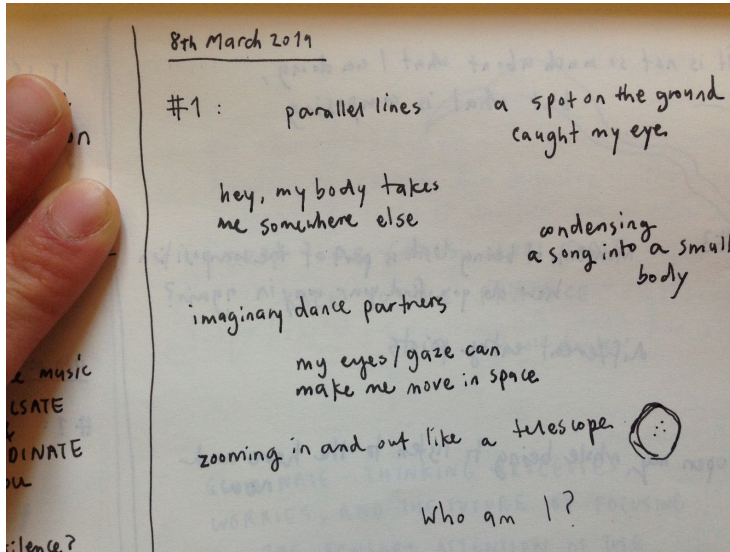 8th March 2019
#1 :
parallel lines
a spot on the ground
caught my eye.
hey, my body takes
me somewhere else
condensing
a song into a small
body
imaginary dance partners
my eyes/gaze can
make me move in space
zooming in and out like a telescope
Who am I?
music
LSATE
DINATE
ilence?